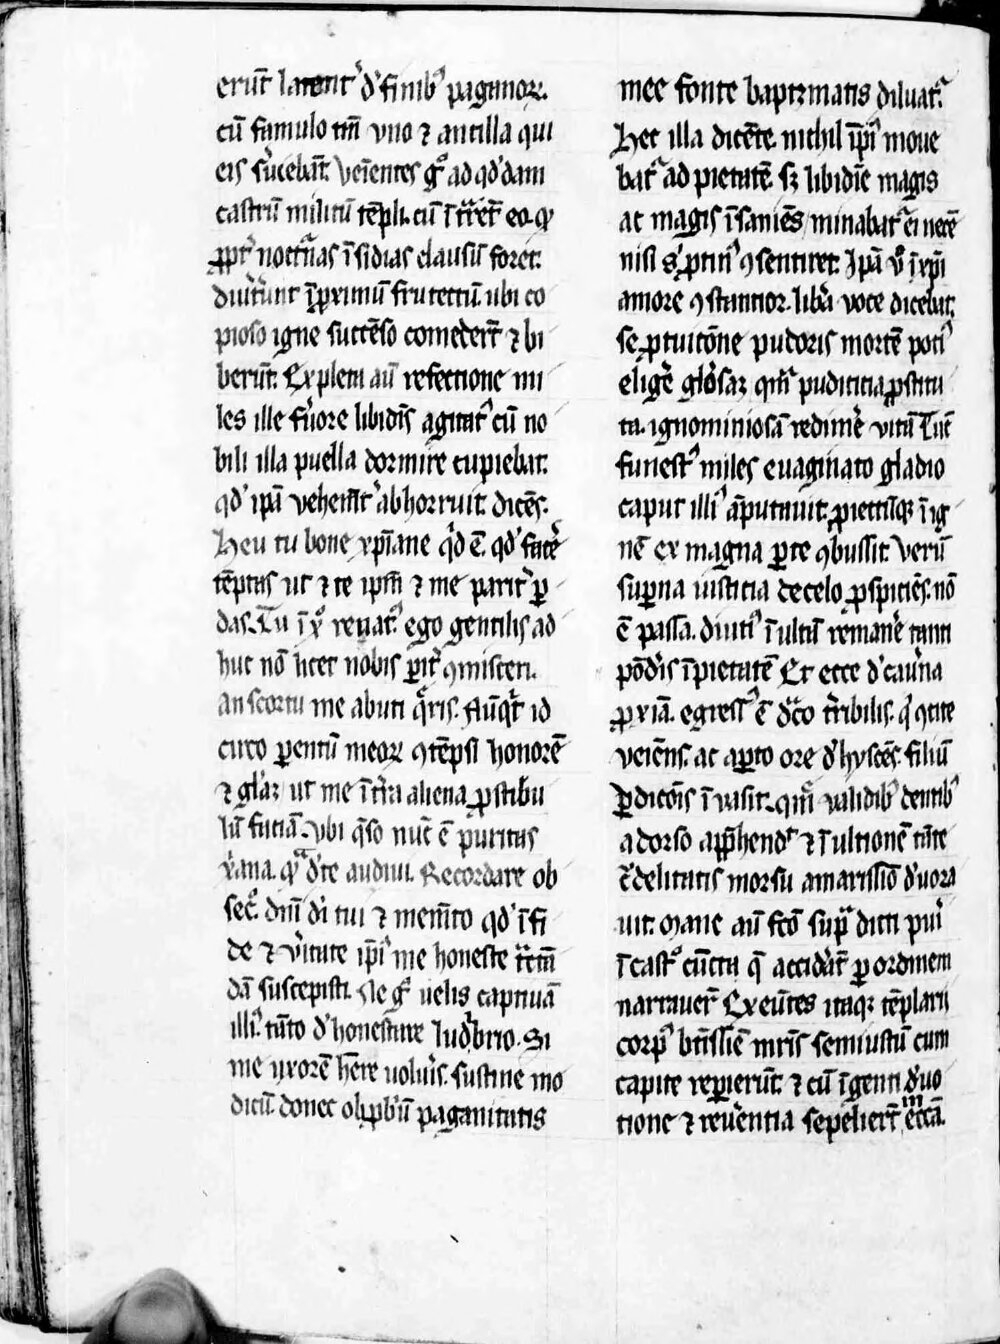 erūt latent᷒ d' finib᷒ paganoꝝ.
cū famulo tm̄ vno ⁊ ancilla qui
eis s'uiebāt. veīentes g° ad qd'dam
castrū militū tēpli. cū ītͣrēt eo. qͥ
ꝓpt' noctͥnas īsidias clausū foret.
diūt'unt ī ꝓximū frutectū. ubi co
pioso igne succēso comederūt ⁊ bi
berūt. Expleta aū refectione mi
les ille fuore libidīs agitat᷒ cū no
bili illa puella dormire cupiebat.
qd' ipā vehemt᷒ abhorruit. dicēs.
Heu tu bone xp̄iane qͥd ē. qd' fac'e
tēptas ut ⁊ te ipm̄ ⁊ me parit' ꝑ
das. Tu ī xp̄o renat᷒. ego gentilis ad
huc nō licet nobis ꝑit' ꝯmisceri.
an scortū me abuti qͥris. Nūqͥd id
circo ꝑentū meoꝝ ꝯtēpsi honorē
⁊ gl'aꝫ ut me ī t'ra aliena ꝓstibu
lū faciā. ubi qͣso nūc ē puritas
xͥana. qͣ d' te audiui. Recordare ob
sec°. dn̄i dī tui ⁊ memto qd' ī fi
de ⁊ v'itate ip̄i᷒ me honeste tͣctm̄
dā suscepisti. Ne g° uelis captiuā
illi᷒ tāto d'honestare ludibrio. Si
me uxorē hēre uolu'is. sustine mo
dicū. donec obꝓb'ū paganitatis
mee fonte baptizmatis diluat᷒.
Hec illa dicēte. nichil ip̄i᷒ moue
bat᷒ ad pietatē. sꝫ libidīe magis
ac magis īsaniēs minabat᷒ ei necē
nisi s' ꝓtin᷒ ꝯsentiret. Ipā v° ī xp̄i
amore ꝯstantior. lib'a voce dicebat.
se ꝓ tuitōne pudoris mortē poti᷒
elig'e gl'osaꝫ qm̄ pudicicia ꝓstitu
ta. ignominiosā redim'e vitā. Tūc
funest᷒ miles euaginato gladio
caput illi᷒ āputauit. ꝓiectūqꝫ ī ig
nē ex magna ꝑte ꝯbussit. Verū
suꝑna iusticia de celo ꝓspiciēs. nō
ē passa. diuti᷒ īultū reman'e tanti
pōd'is īpietatē. Et ecce d' cau'na
ꝓxiā. egress᷒ ē dͣco t'ribilis. qͥ ꝯcite
veiēns. ac aꝑto ore d'hyscēs. filiū
ꝑdicōis īuasit. qm̄ validib᷒ dentib᷒
a dorso app̄hend' ⁊ ī ultionē tāte
c'delitatis morsu amarissiō d'uora
uit. Mane aū fcō supͣ dicti pu'i
ī cast᷒ cūcta q̄ accid'āt ꝑ ordinem
narrauer̄t. Exeūtes itaqꝫ tēplarii
corp᷒ btissīe mr̄is semiustū cum
capite repꝑierūt. ⁊ cū īgenti d'uo
tione ⁊ reu'entia sepelierūt ī ecc̄a.